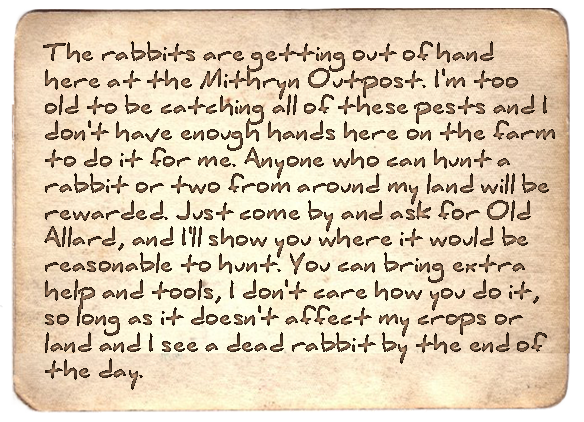 The rabbits are getting out of hand
here at the Mithryn Outpost. I'm too
old to be catching all of these pests and I
don't have enough hands here on the farm
to do it for me. Anyone who can hunt a
rabbit or two from around my land will be
rewarded. Just come by and ask for Old
Allard, and I'll show you where it would be
reasonable to hunt. You can bring extra
help and tools, I don't care how you do it,
so long as it doesn't affect my crops or
land and I see a dead rabbit by the end of
the day.